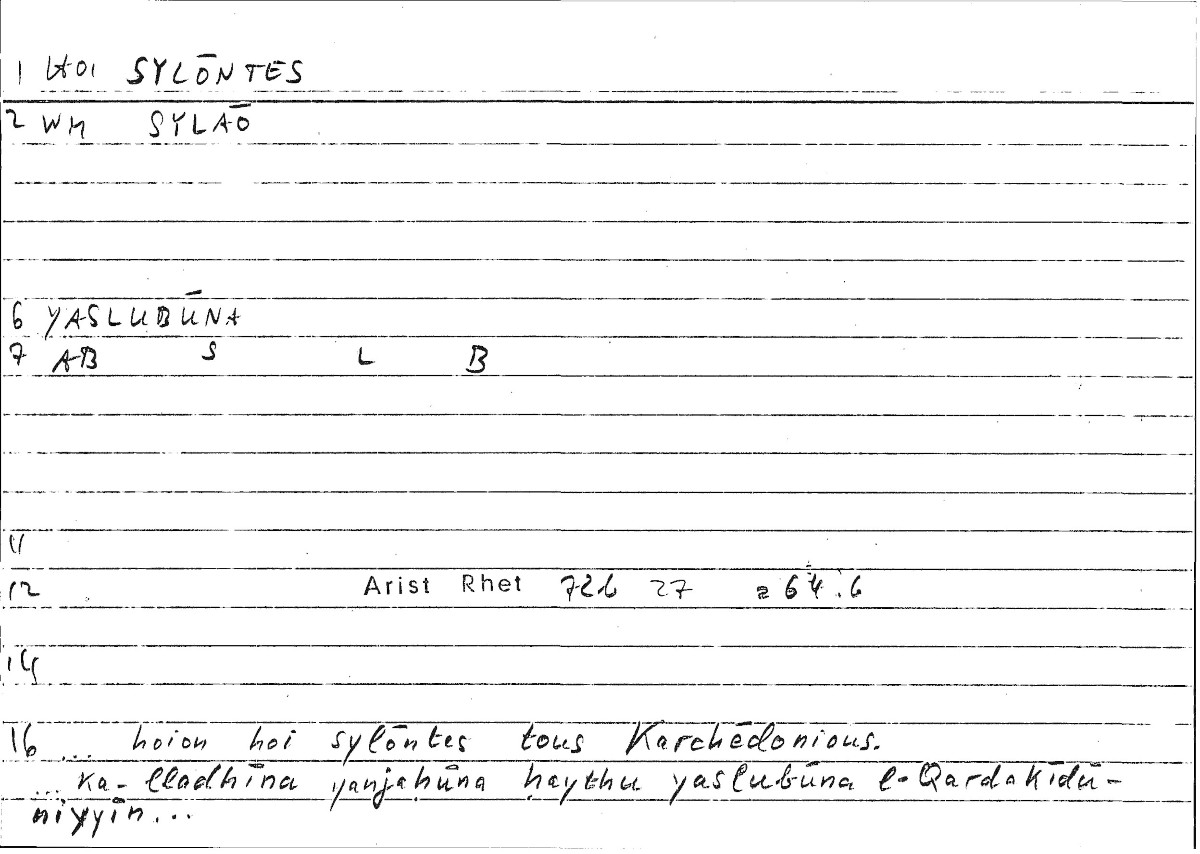 1 HOI SYLŌNTES
2 WM SYLAŌ
6 YASLUBŪNA
7 AB S L B
11
12 Arist Rhet 72b 27 = 64.6
14
16 ... hoion hoi sylōntes tous Karchēdonious.
... ka-lladhīna yanjaḥūna ḥaythu yaslubūna l-Qardakīdū-
niyyīn...